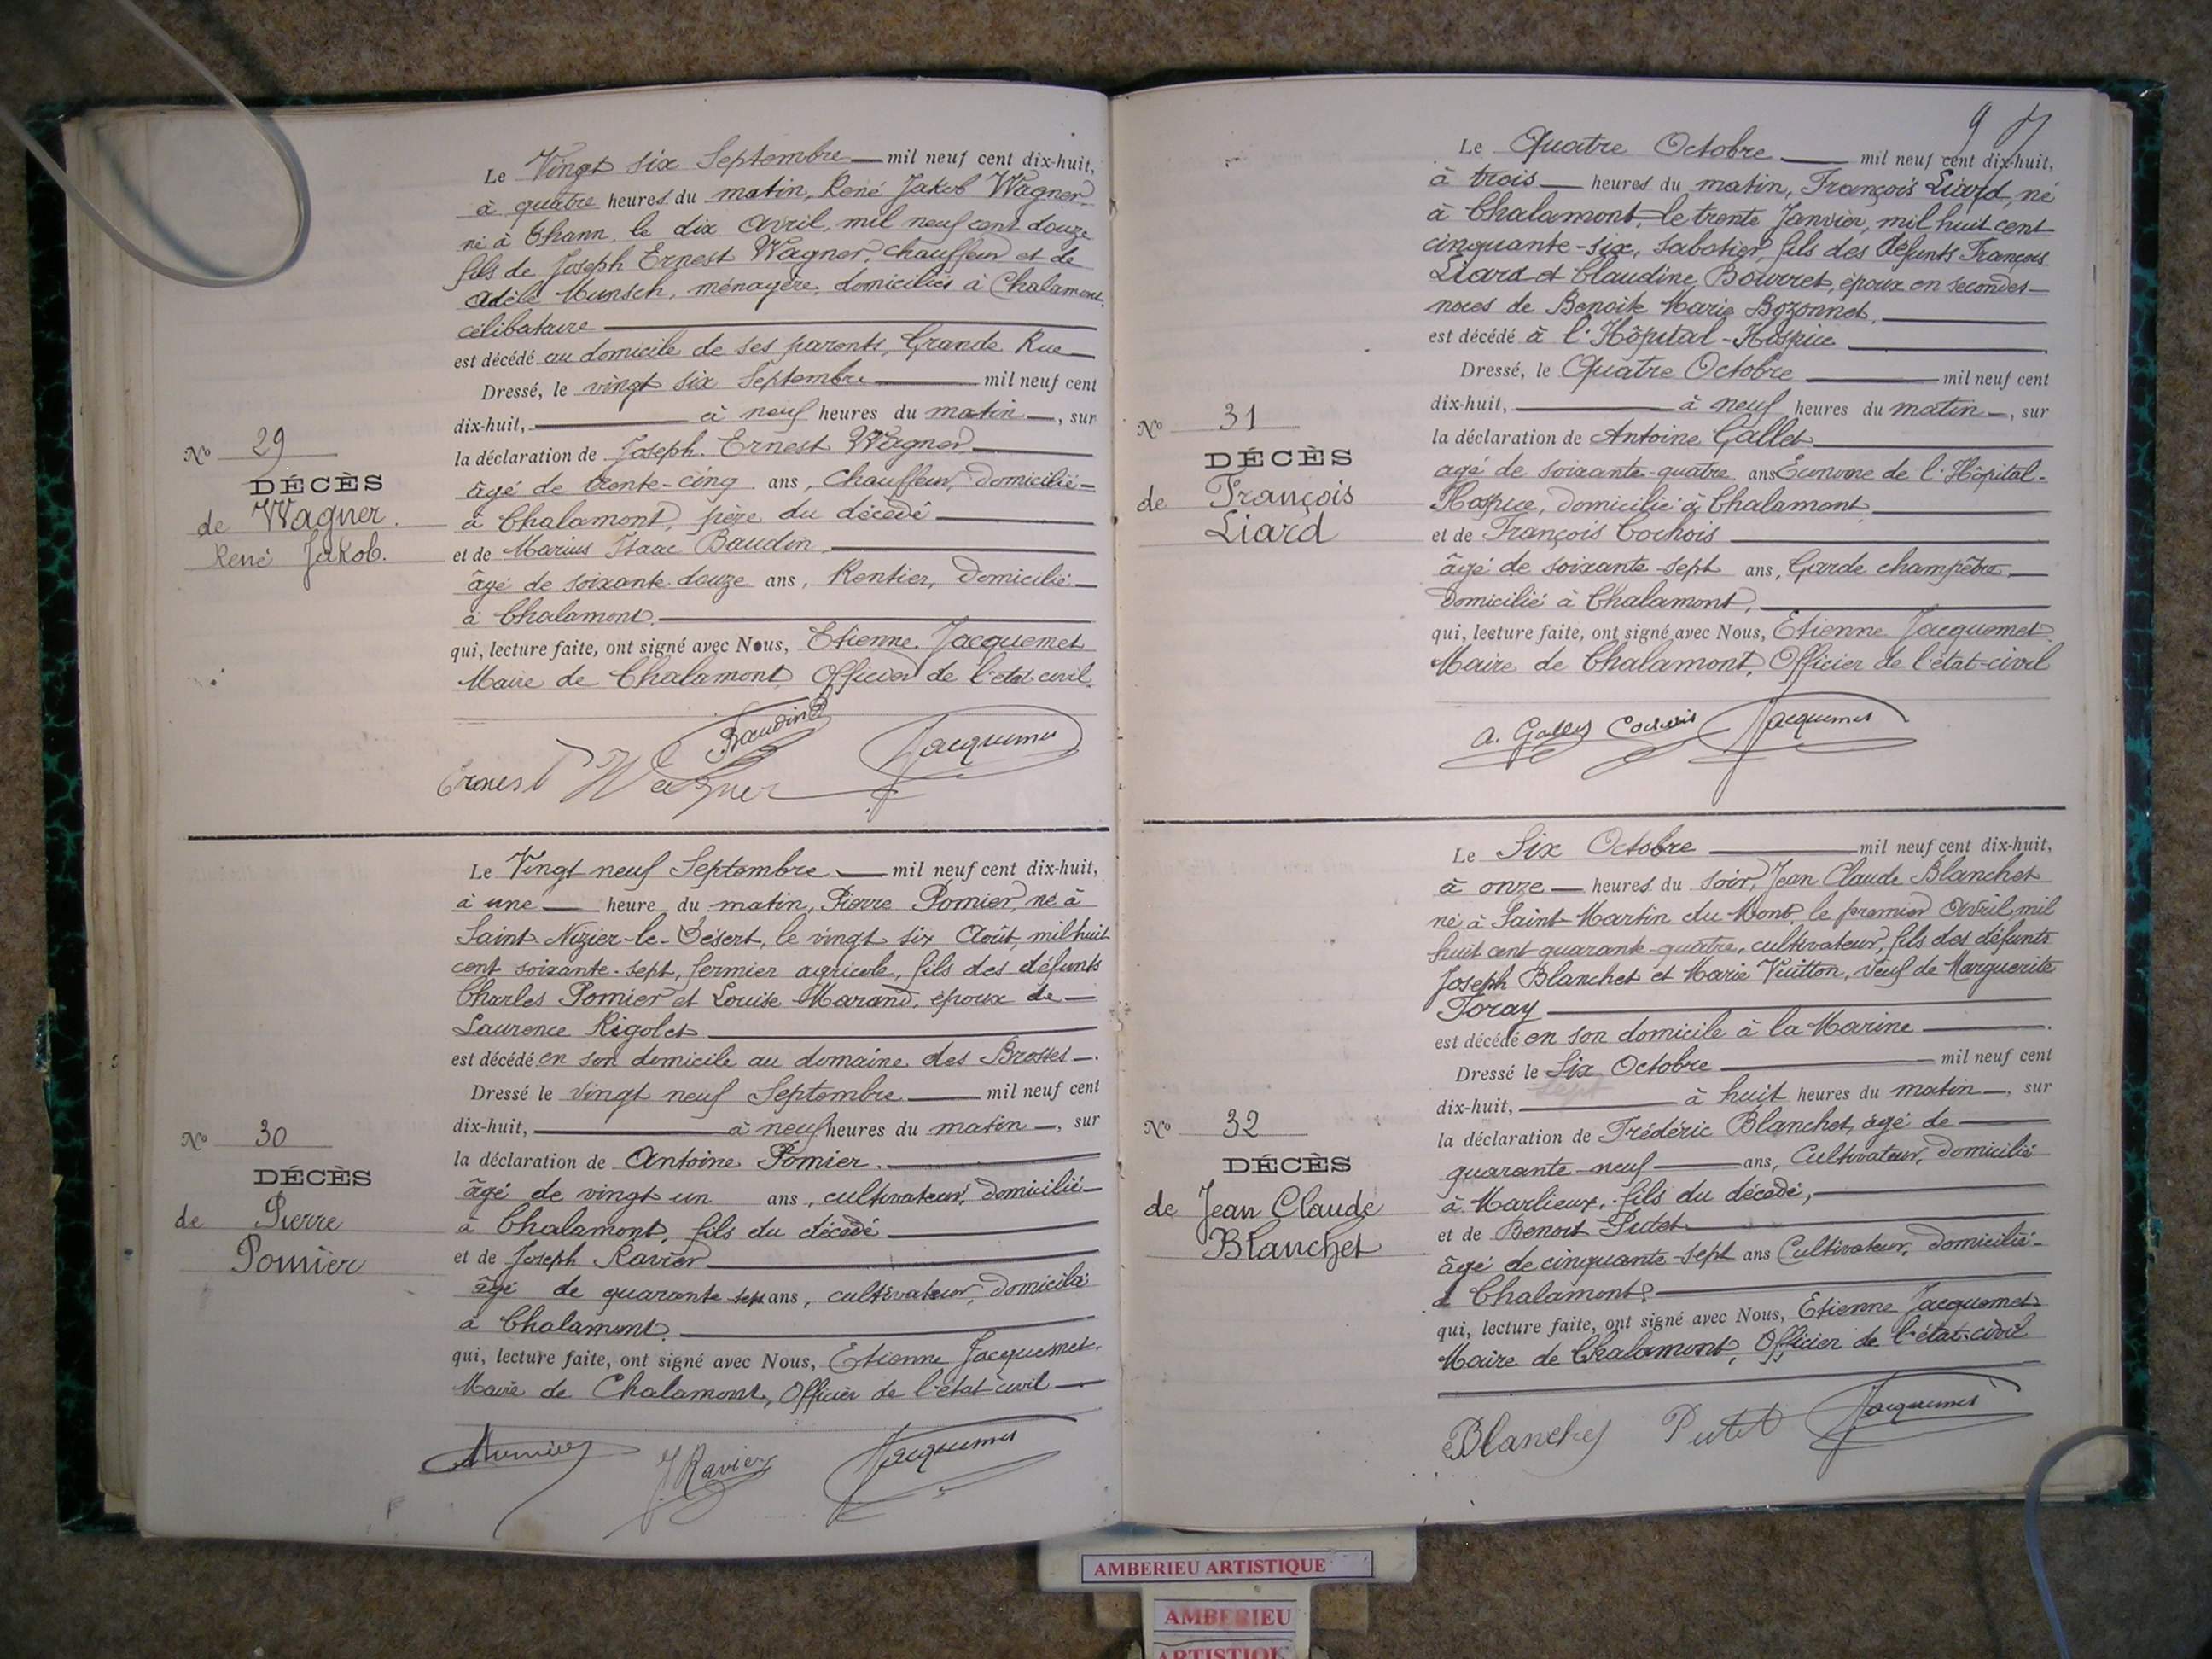 Le Vingt six Septembre mil neuf cent dix-huit,
à quatre heures du matin, René Jakob Wagner
né à Thann, le dix Avril, mil neuf cent douze
fils de Joseph Ernest Wagner, chauffeur et de
Adèle Munsch, ménagère, domiciliés à Chalamont,
célibataire
est décédé au domicile de ses parents, Grande Rue
Dressé, le vingt six Septembre mil neuf cent
dix-huit, à neuf heures du matin, sur
la déclaration de Joseph Ernest Wagner
âgé de trente-cinq ans, Chauffeur, domicilié
à Chalamont, père du décédé
et de Marius Isaac Baudin
âgé de soixante douze ans, Rentier, domicilié
à Chalamont.
qui, lecture faite, ont signé avec Nous, Etienne Jacquemet
Maire de Chalamont, Officier de l'état-civil
Baudin
Ernest Wagner
Jacquemet
N° 29
DÉCÈS
de Wagner.
René Jakob.
Le Vingt neuf Septembre mil neuf cent dix-huit,
à une heure du matin, Pierre Pomier, né à
Saint-Nizier-le-Désert, le vingt six Août, mil huit
cent soixante-sept, fermier agricole, fils des défunts
Charles Pomier et Louise Marand, époux de
Laurence Rigolet
est décédé en son domicile au domaine des Brosses.
Dressé le vingt neuf Septembre mil neuf cent
dix-huit, à neuf heures du matin, sur
la déclaration de Antoine Pomier.
âgé de vingt un ans, cultivateur, domicilié
à Chalamont, fils du décédé
et de Joseph Ravier
âgé de quarante sept ans, cultivateur, domicilié
à Chalamont.
qui, lecture faite, ont signé avec Nous, Etienne Jacquemet.
Maire de Chalamont, Officier de l'état-civil
J Ravier
Jacquemet
N° 30
DÉCÈS
de Pierre
Pomier
97
Le Quatre Octobre mil neuf cent dix-huit,
à trois heures du matin, François Liard, né
à Chalamont, le trente Janvier, mil huit cent
cinquante-six, sabotier, fils des défunts François
Liard et Claudine Bourret, époux en secondes
noces de Benoite Marie Bozonnet.
est décédé à l'Hôpital-Hospice
Dressé, le Quatre Octobre mil neuf cent
dix-huit, à neuf heures du matin, sur
la déclaration de Antoine Gallet
âgé de soixante-quatre ans Econome de l'Hôpital-
Hospice, domicilié à Chalamont
et de François Cochois
âgé de soixante-sept ans, Garde champêtre
domicilié à Chalamont,
qui, lecture faite, ont signé avec Nous, Etienne Jacquemet
Maire de Chalamont, Officier de l'état-civil
A. Gallet Cochois Jacquemet
N° 31
DÉCÈS
de François
Liard
Le Six Octobre mil neuf cent dix-huit,
à onze heures du soir, Jean Claude Blanchet
né à Saint-Martin du Mont le premier Avril, mil
huit cent quarante-quatre, cultivateur, fils des défunts
Joseph Blanchet et Marie Vuitton, veuf de Marguerite
Foray
est décédé en son domicile à la Marine
Dressé le Six Octobre mil neuf cent
dix-huit, à huit heures du matin, sur
la déclaration de Frédéric Blanchet, âgé de
quarante-neuf ans, Cultivateur, domicilié
à Marlieux, fils du décédé,
et de Benoit Putet
âgé de cinquante-sept ans Cultivateur, domicilié
à Chalamont
qui, lecture faite, ont signé avec Nous, Etienne Jacquemet
Maire de Chalamont, Officier de l'état-civil
Blanchet Putet Jacquemet
N° 32
DÉCÈS
de Jean Claude
Blanchet
AMBERIEU ARTISTIQUE
AMBERIEU
ARTISTIQUE